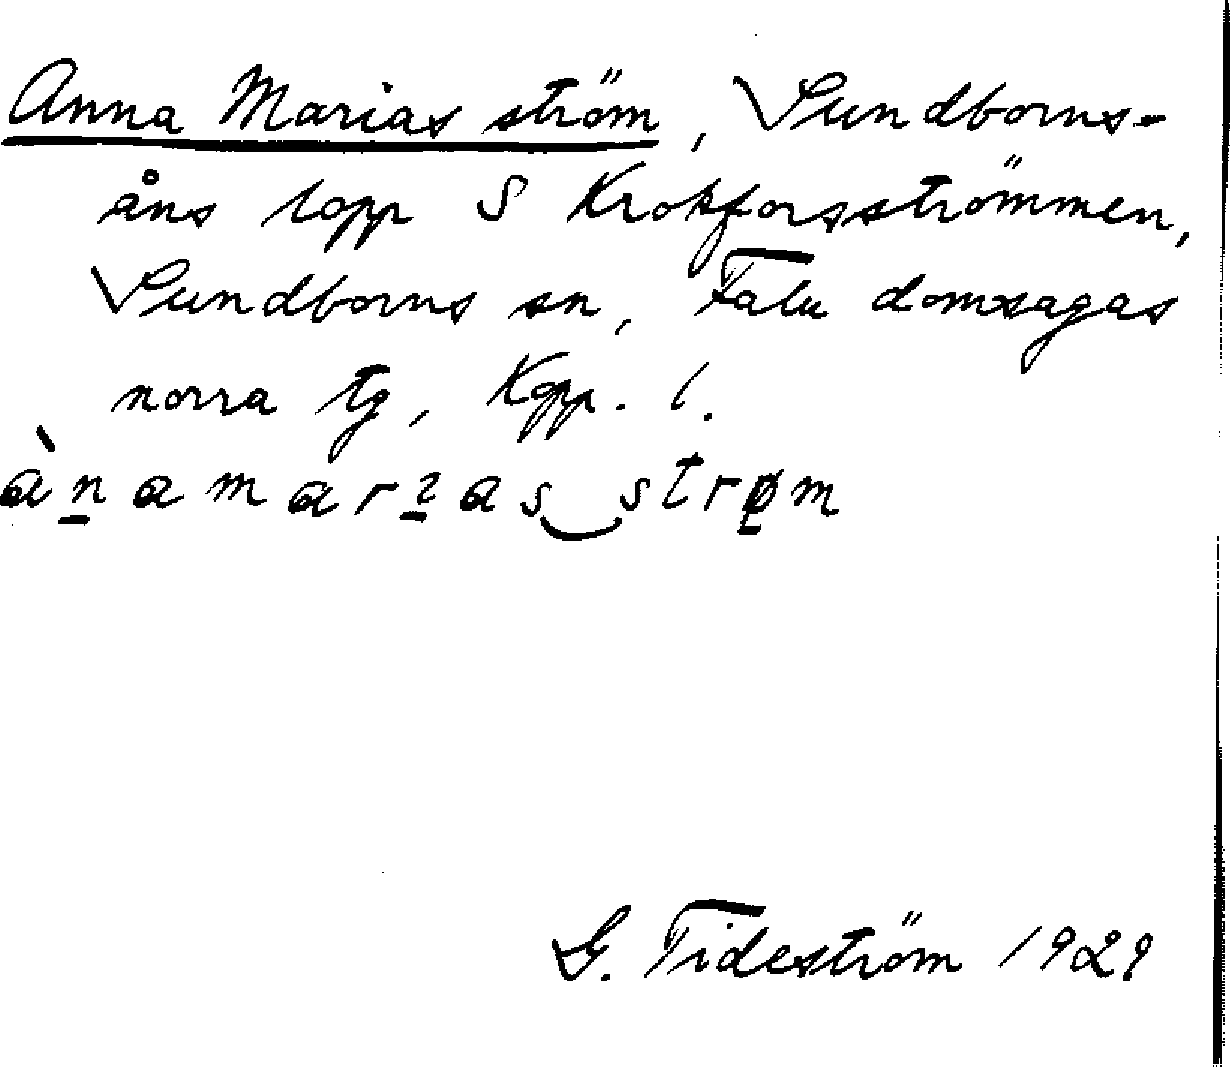 Anna Marias ström, Sundborns-
åns lopp S Krokforsströmmen,
Sundborns sn, Falu domsagas
norra tg, Kopp. l.
àn̲amarɿ̲as‿strø̲m
G. Tideström 1929